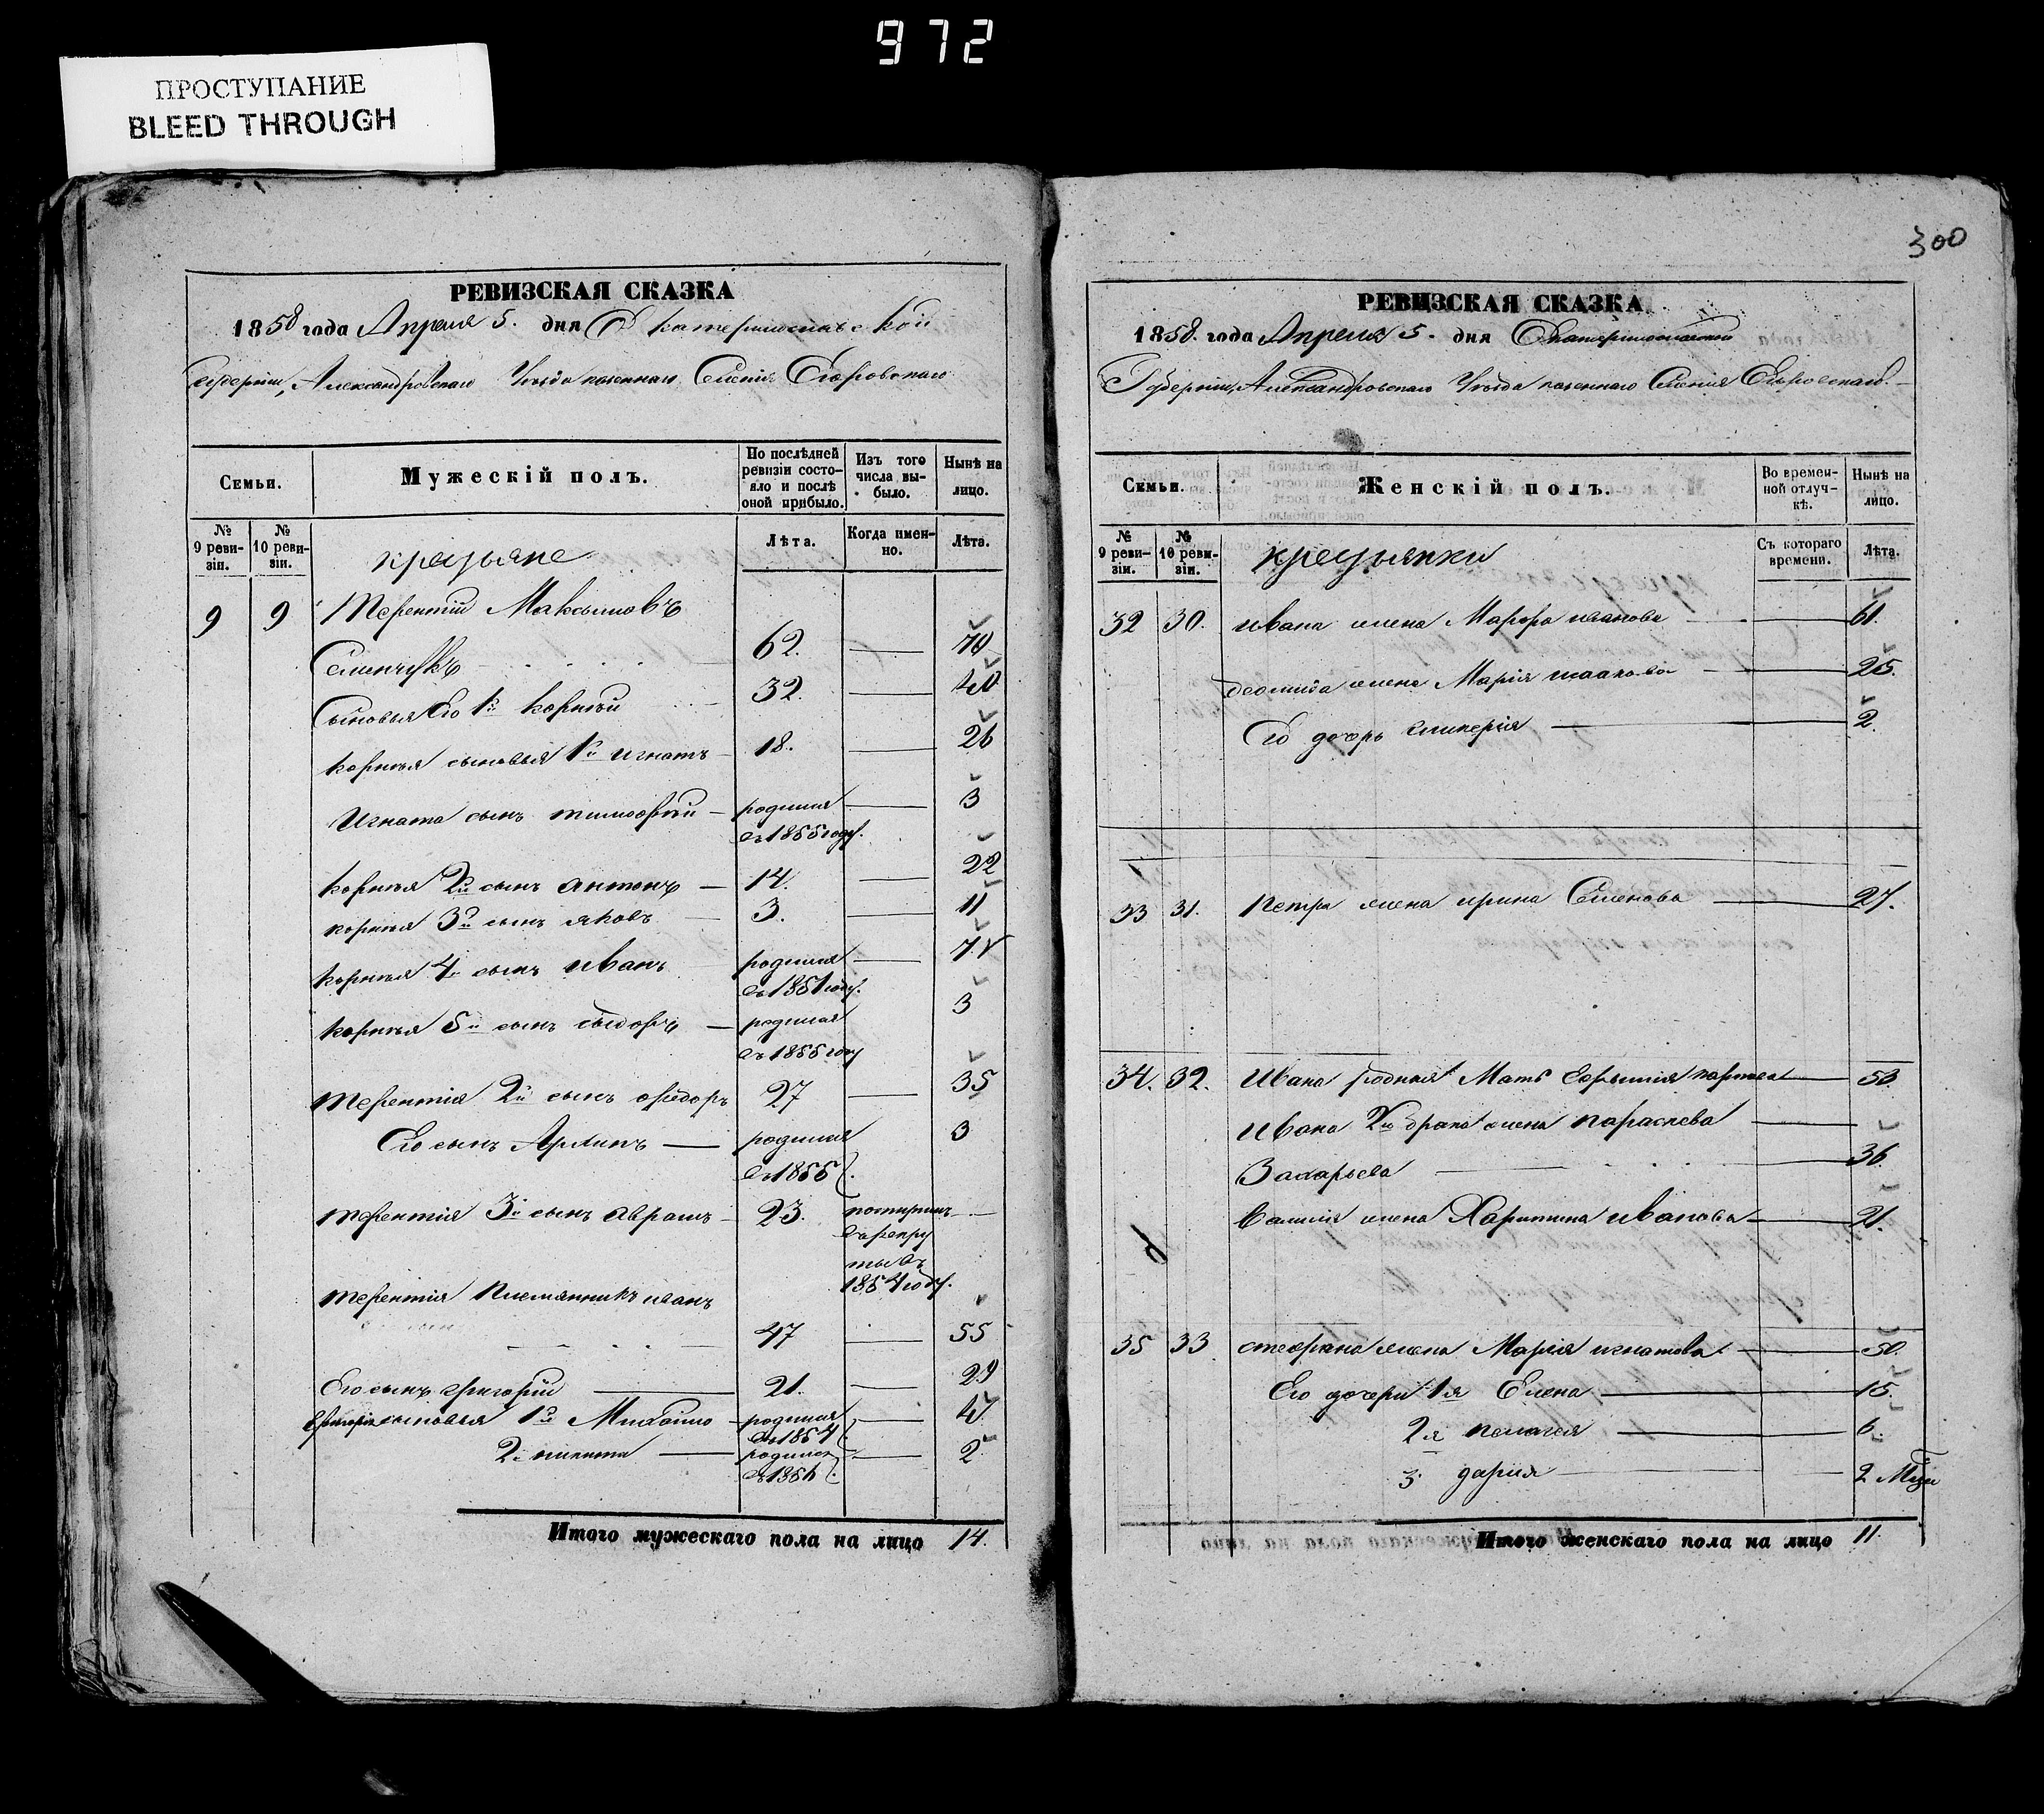 972
ПРОСТУПАНИЕ
BLEED THROUGH
РЕВИЗСКАЯ СКАЗКА
1858 года Апреля 5. дня Екатеринославской
Губернии, Александровского Уезда казенного Селения
Семьи.
Мужескій полъ.
По послѣдней ревизіи состояло и послѣ оной прибыло.
Изъ того числа выбыло.
Нынѣ на лицо.
№ 9 ревизіи.
№ 10 ревизіи.
Лѣта.
Когда именно.
Лѣта.
9 9 Терентій Максимовъ
62. 70
Сыновья Его 1й Корнѣй 32. 40
Корнѣя сыновья 1й Игнатъ 18. 26
Игната сынъ тимофѣй родился 3
въ 1855 году.
Корнѣя 2й сынъ антонъ 14. 22
корнѣя 3й сынъ яковъ 3. 11
корнѣя 4й сынъ иванъ родился 7
въ 1851 году.
корнѣя 5й сынъ сыдоръ родился 3
въ 1855 году
терентія 2й сынъ фѣдоръ 27 35
Его сынъ родился 3
въ 1855
терентія 3й сынъ аврамъ 23.
въ рекру
ты въ
1854 году.
терентія племянникъ иванъ
47 55
Его сынъ григорій 21. 29
сыновья 1й Михайло родился 4
въ 1854
2й никита родился 2
въ 1856
Итого мужескаго пола на лицо 14.
300
РЕВИЗСКАЯ СКАЗКА
1858. года Апреля 5. дня Екатеринославской
Губерніи, Александровского Уезда казенного Селения
Семьи.
Женскій полъ.
Во временной отлучкѣ.
Нынѣ на лицо.
№ 9 ревизіи.
№ 10 ревизіи.
Съ котораго времени.
Лѣта.
32 30. ивана жена Марфа иванова 61.
жена Марія 25.
Его дочерь 2
33 31. Петра жена ирина Семенова 27.
34. 32. Ивана родная Мать 53
ивана 2го брата жена параскева
Захарьева 36.
жена Харитина иванова 21.
35 33 стефана жена Марія игнатова 50.
Его дочери 1я Елена 15.
2я пелагея 6.
3 дарія 2 Мца
Итого женскаго пола на лицо 11.